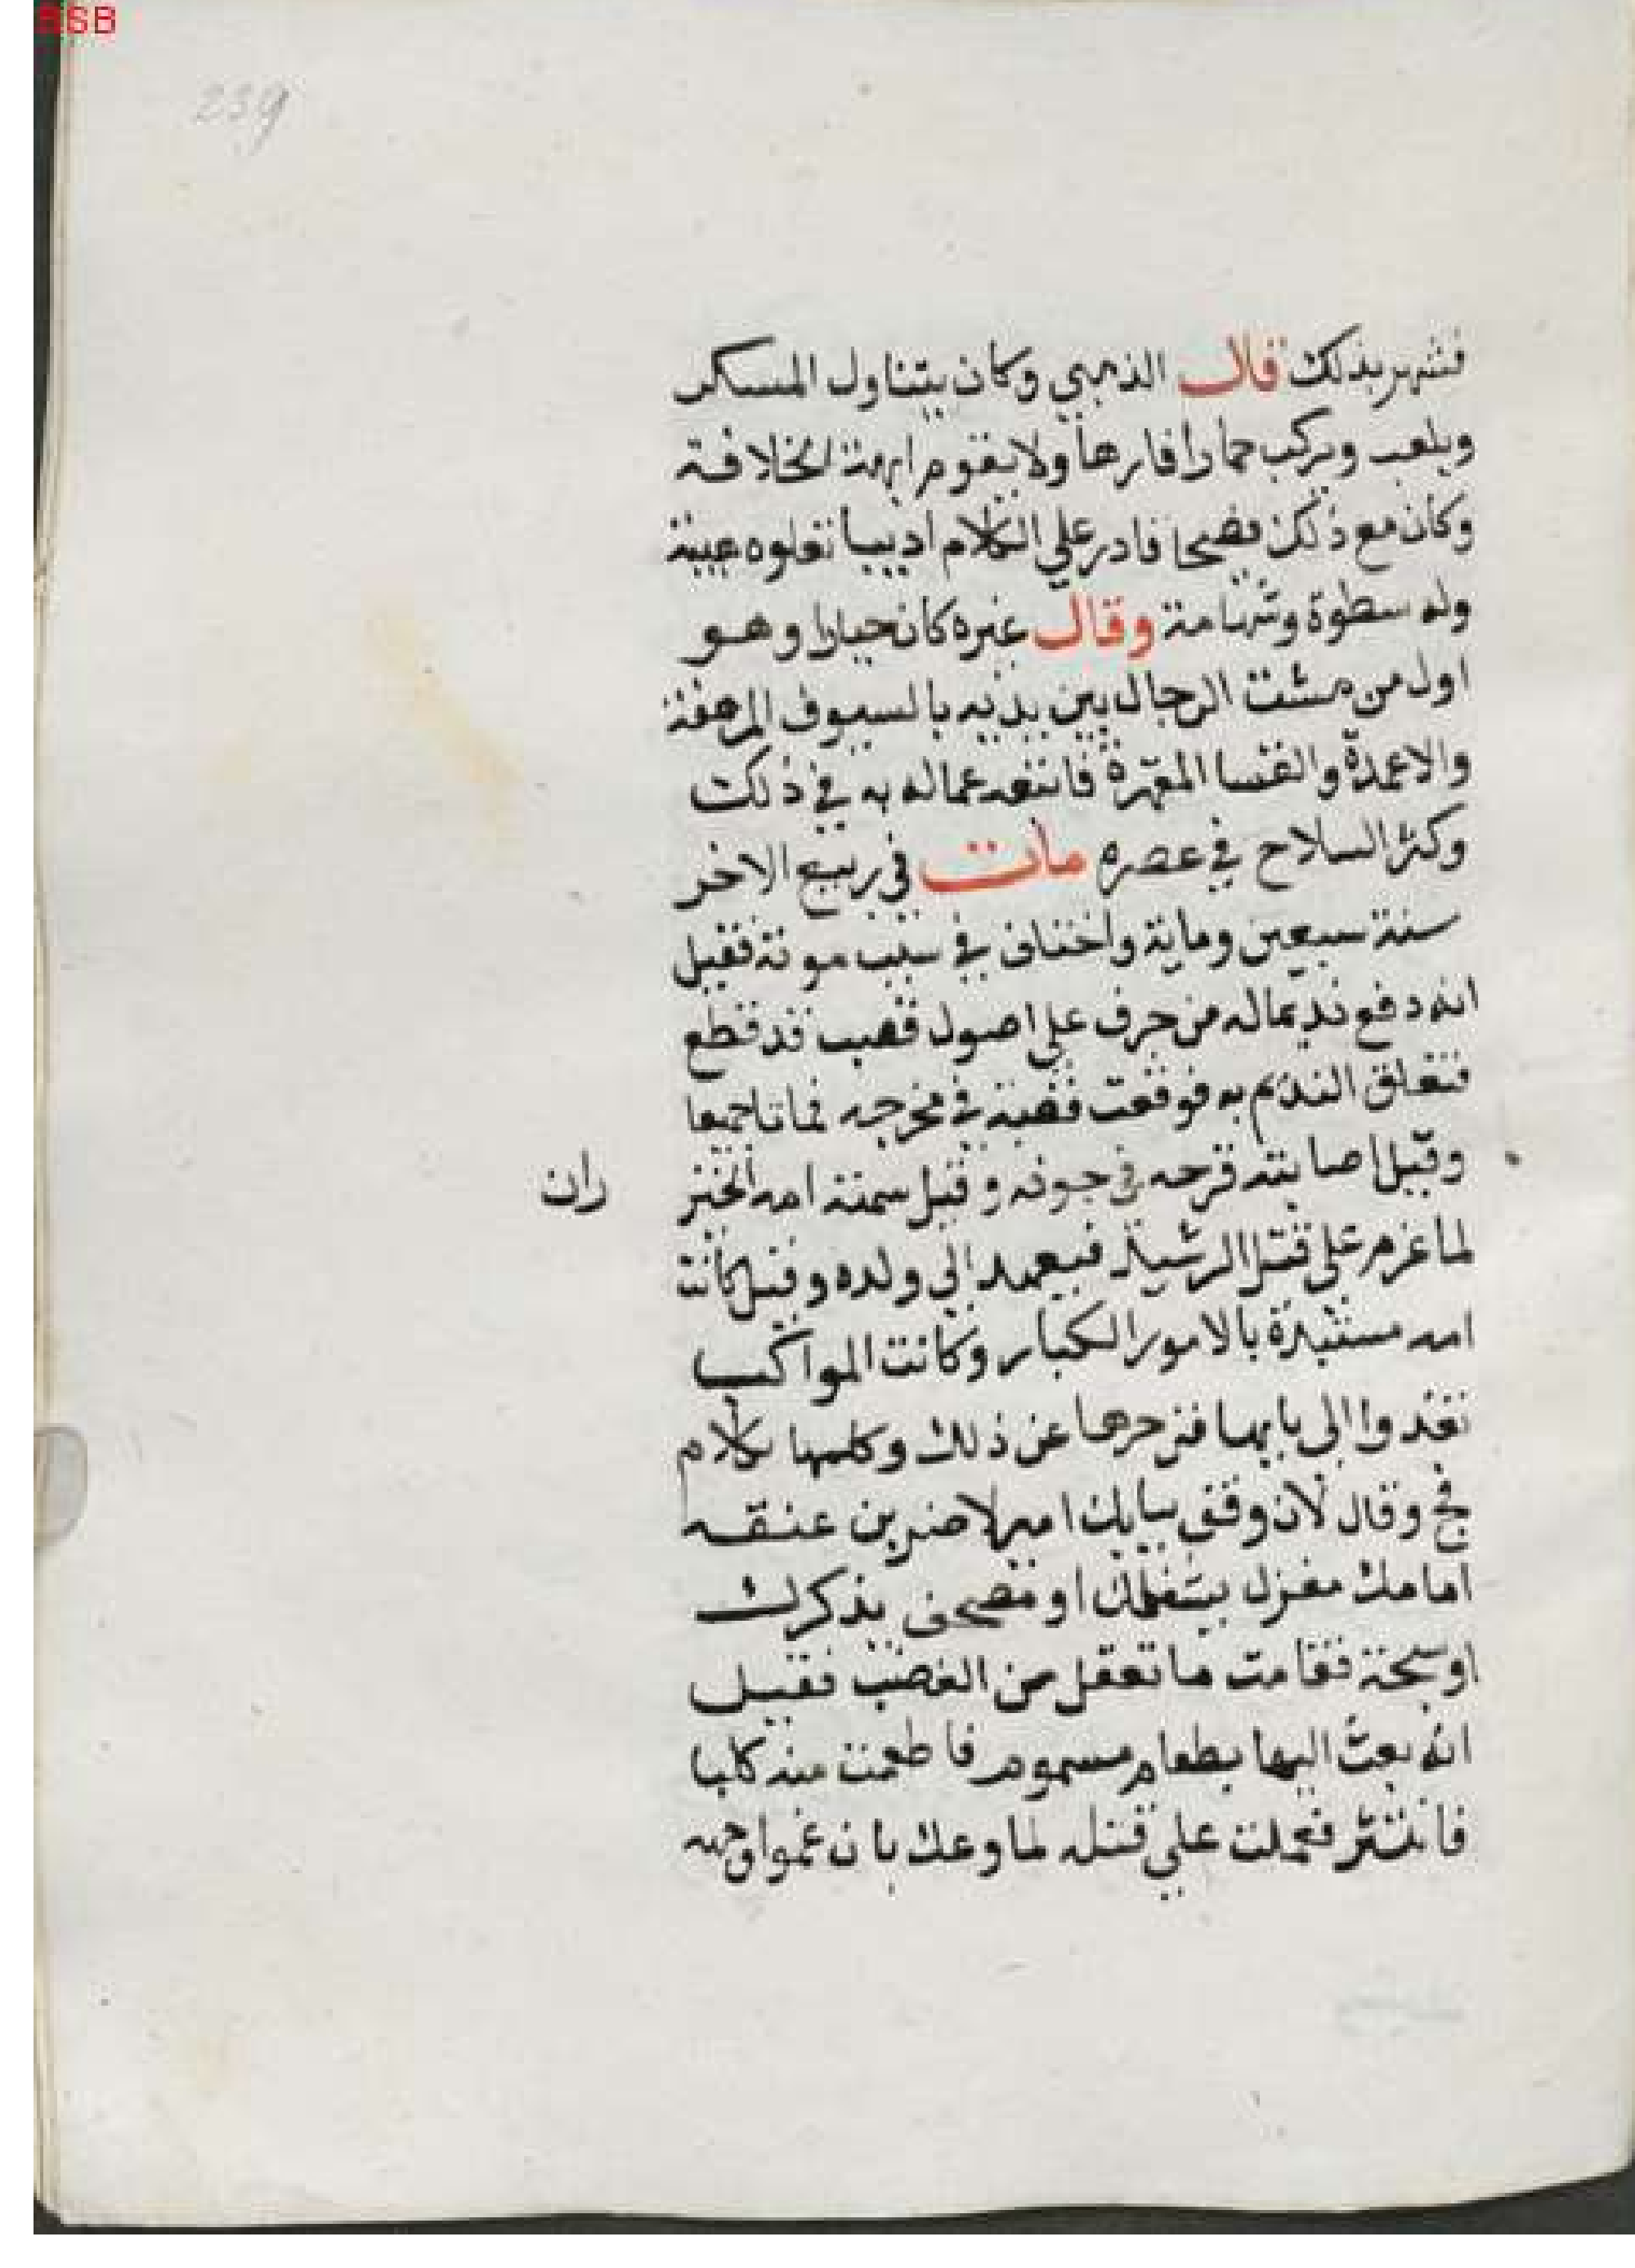 BSB
239
فشهر بذلك قال الذهبي وكان يتناول المسكر
ويلعب ويركب حمارا فارها ولا يقوم ابهة الخلافة
وكان مع ذلك فصيحا قادر علي الكلام اديبا تعلوه هيبة
وله سطوة وشهامة وقال غيره كان جبارا وهو
اول من مشت الرجال بين يديه بالسيوف المرهفة
والاعمدة والقسا الموترة فاتبعه عماله به في ذلك
وكثر السلاح في عصره مات في ربيع الاخر
سنة سبعين وماية واختلف في سبب موته فقيل
انه دفع نديما له من جرف علي اصول قصب قد قطع
فتعلق النديم به فوقعت قصبة في مخرجه فماتا جميعا
وقيل اصابته قرحه في جوفه وقيل سمته امه الخيز
ران
لما عزم علي قتل الرشيد فيعهد الي ولده وقيل كانت
امه مستبدة بالامور الكبار وكانت المواكب
تغدوا الي بابها فزجرها عن ذلك وكلمها بكلام
فج وقال لان وقف ببابك امير لاضربن عنقه
امامك مغزل يشغلك او مصحف يذكرك
او سبحة فقامت ما تعقل من الغضب فقيل
انه بعث اليها بطعام مسموم فاطعمت منه كلبا
فانتثر فعملت علي قتله لما وعك بان غموا وجهه